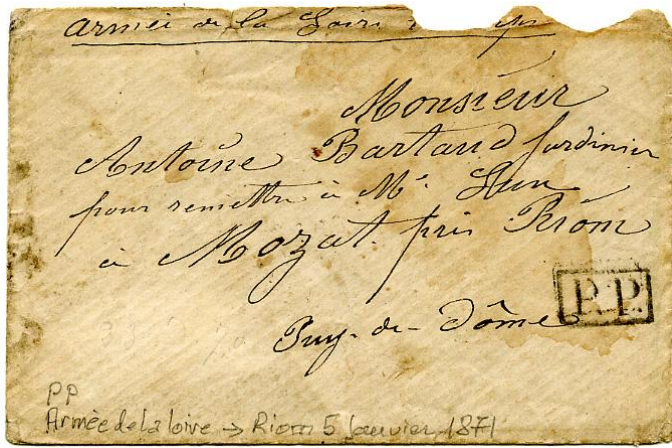 Armée de la Loire
Monsieur
Antoine Bartaud Jardinier
pour remettre à Mr
à Mozat près Riom
P.P.
Puy-de-Dôme
PP
Armée de la loire → Riom 5 Janvier 1871